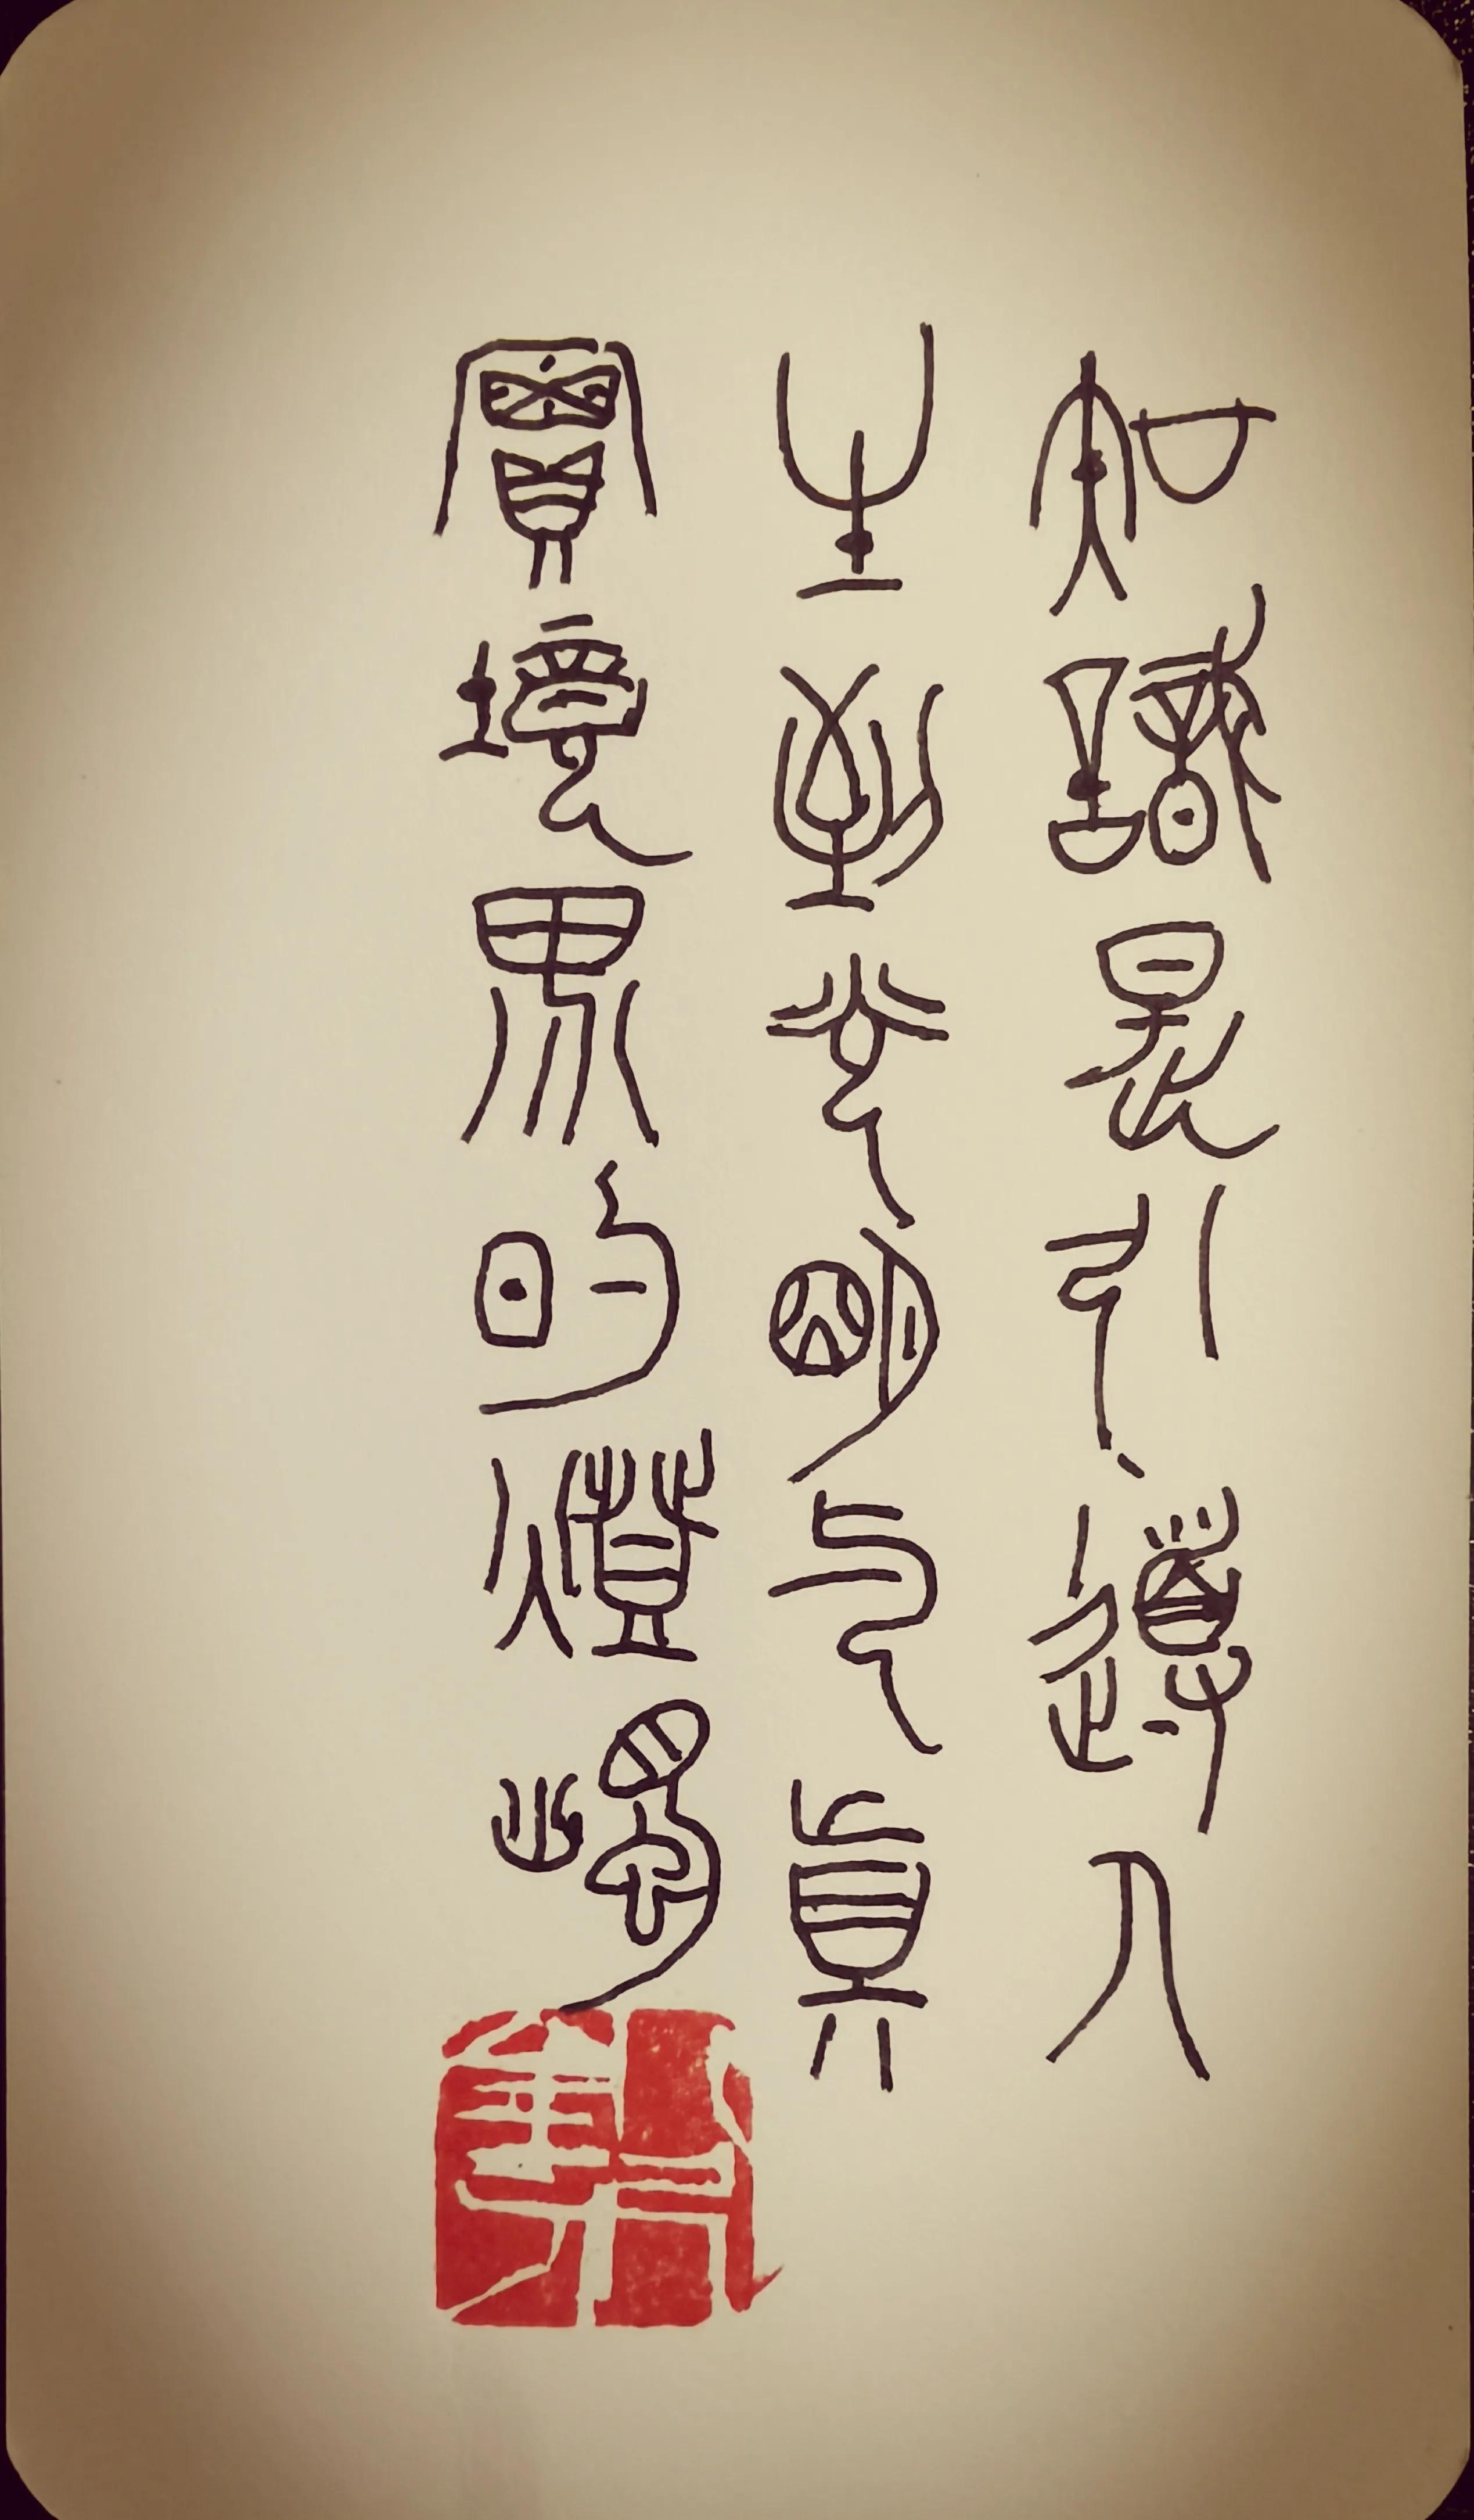 知識是引導人
生到光明与真
實境界的燈燭